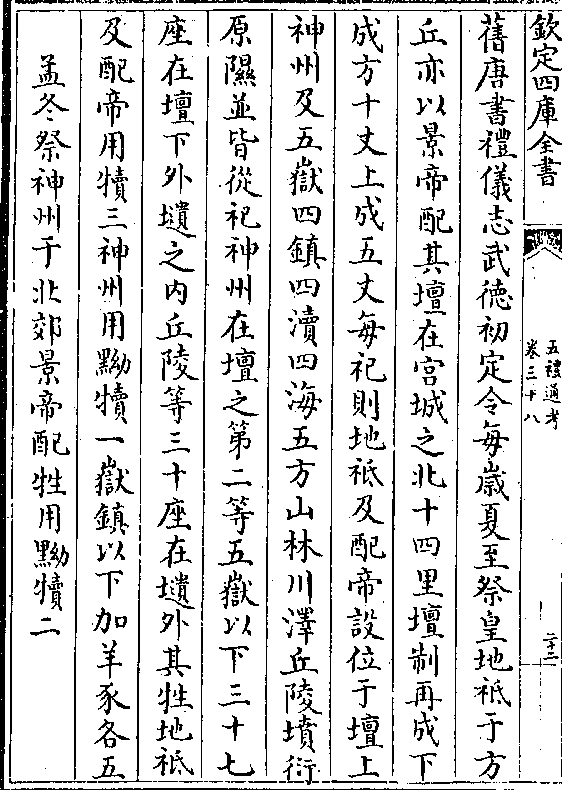 欽定四庫全書
五禮通考
卷三十八
二十二
舊唐書禮儀志武德初定令每歲夏至祭皇地祗于方
丘亦以景帝配其壇在宮城之北十四里壇制再成下
成方十丈上成五丈每祀則地祗及配帝設位于壇上
神州及五嶽四鎮四瀆四海五方山林川澤丘陵墳衍
原隰並皆從祀神州在壇之第二等五嶽以下三十七
座在壇下外壝之內丘陵等三十座在壝外其牲地祗
及配帝用犢三神州用黝犢一嶽鎮以下加羊豕各五
孟冬祭神州于北郊景帝配牲用黝犢二